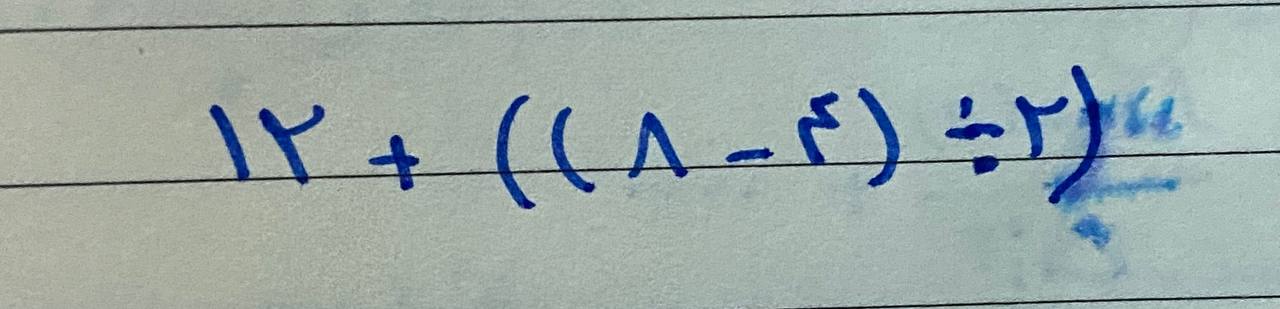 ۱۲ + ((۸ - ۴) ÷ ۲)